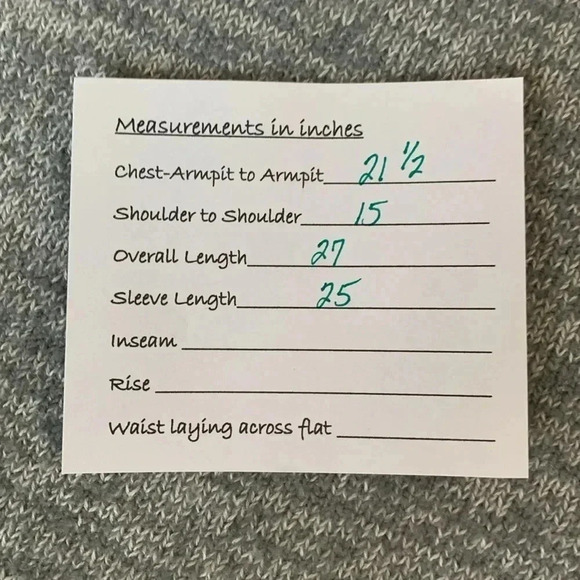 Measurements in inches
Chest-Armpit to Armpit 21 1/2
Shoulder to Shoulder 15
Overall Length 27
Sleeve Length 25
Inseam
Rise
Waist laying across flat